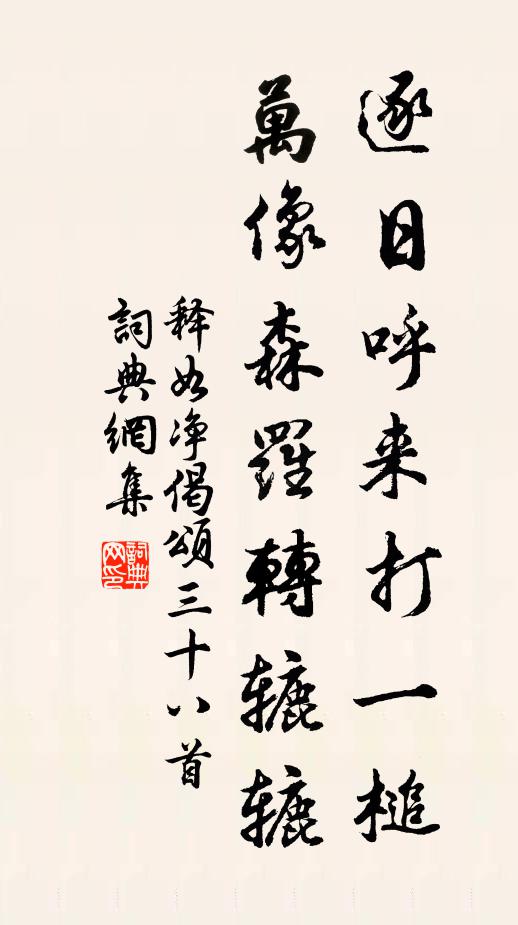 逐日呼来打一槌
萬像森羅轉辘辘
释如净偈頌三十八首
詞典網集
詞典网印